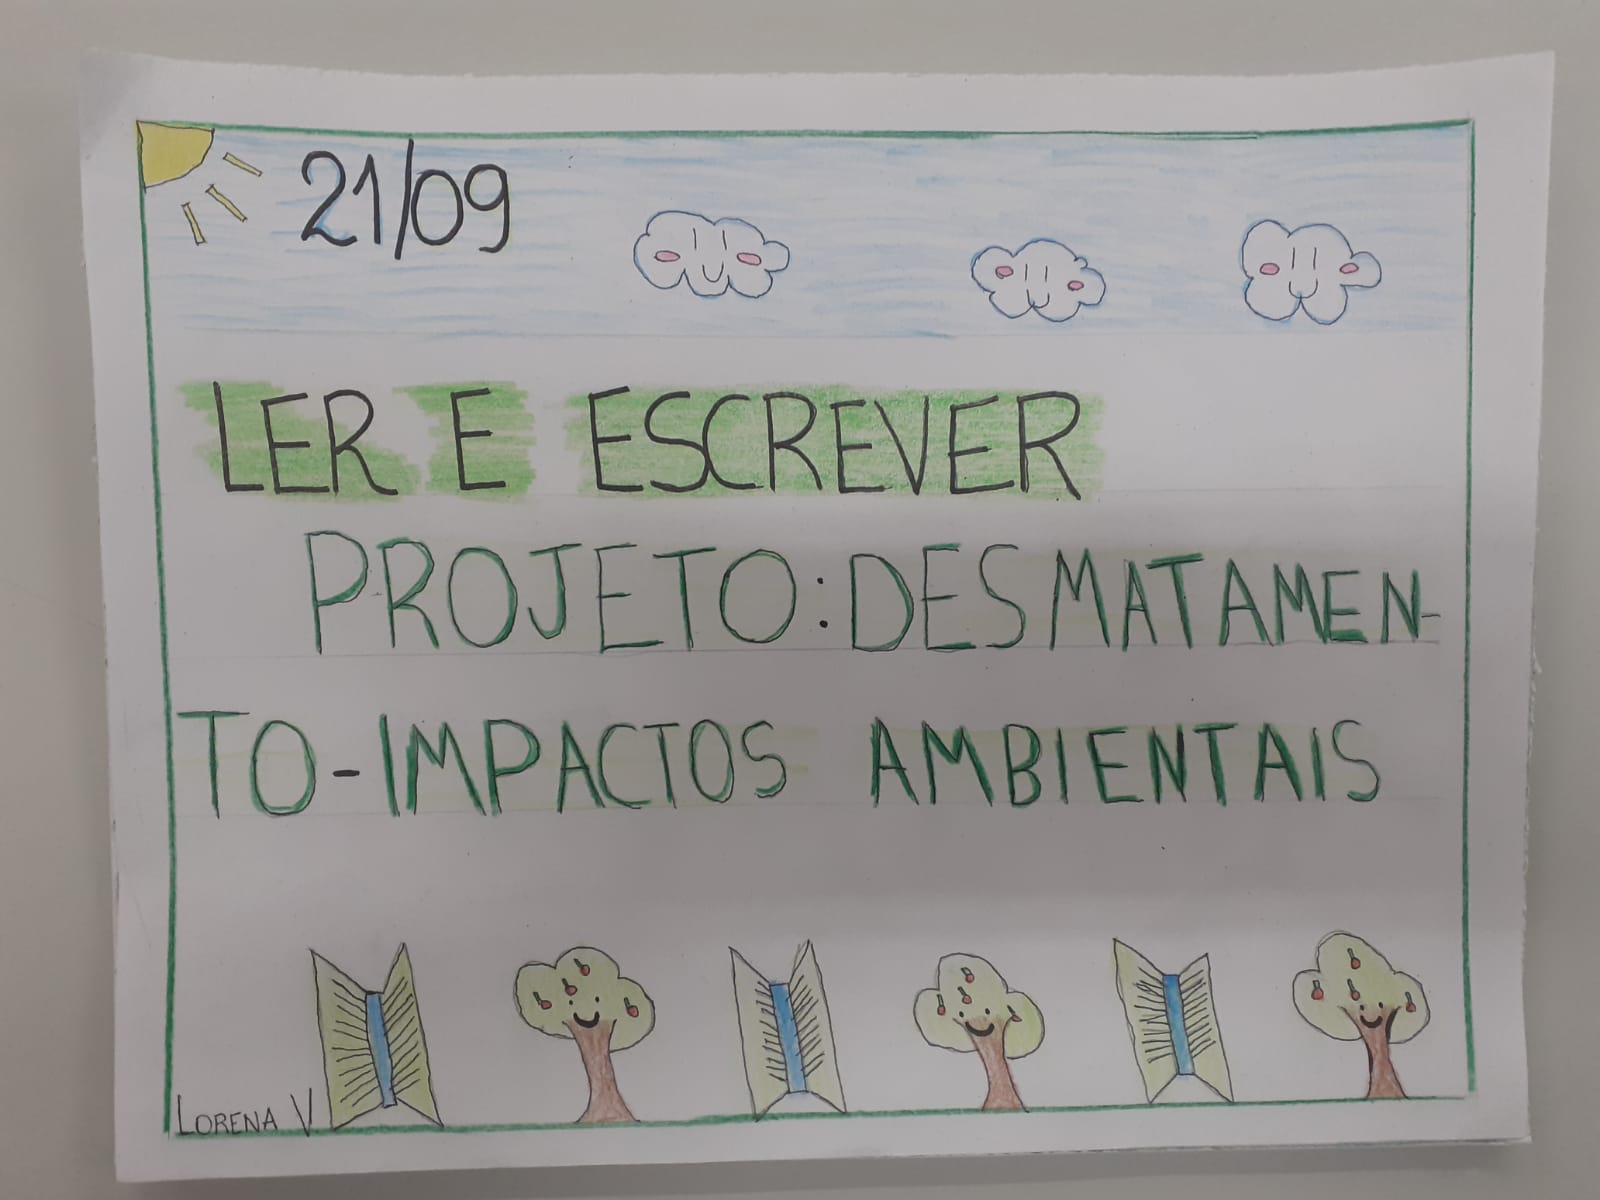 21/09
LER E ESCREVER
PROJETO: DESMATAMEN-
TO-IMPACTOS AMBIENTAIS
LORENA V.